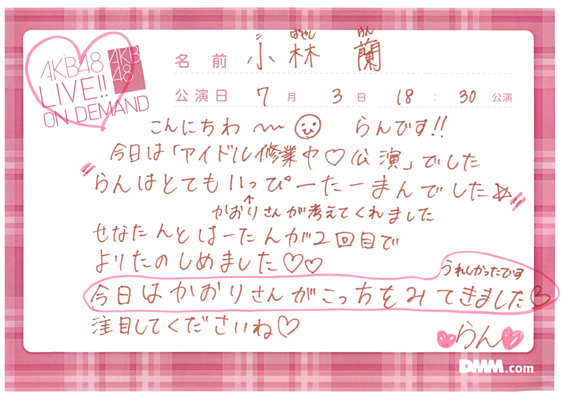 AKB48
LIVE!!
ON DEMAND
AKB
48
名前 小林 蘭
ばやし らん
公演日 7月 3日 18:30 公演
こんにちわ〜 らんです!!
今日は「アイドル修業中♡公演」でした
らんはとてもいっぴーたーまんでした☆
↑
かおりさんが考えてくれました
せなたんとはーたんが2回目で
よりたのしめました♡♡
うれしかったです
今日はかおりさんがこっちをみてきました♡
注目してくださいね♡
♡らん♡
DMM.com